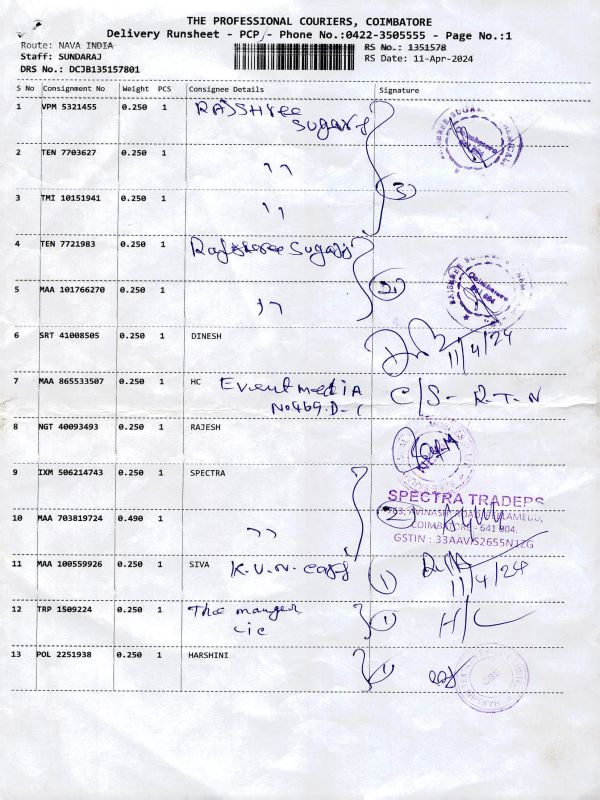 THE PROFESSIONAL COURIERS, COIMBATORE
Delivery Runsheet - PCP - Phone No.:0422-3505555 - Page No.:1
Route: NAVA INDIA
RS No.: 1351578
Staff: SUNDARAJ
RS Date: 11-Apr-2024
DRS No.: DCJB135157801
S No Consignment No Weight PCS Consignee Details Signature
1 VPM 5321455 0.250 1 Rajshree
Sugars
2 TEN 7703627 0.250 1 ,,
3 TMI 10151941 0.250 1 ,, 3
4 TEN 7721983 0.250 1 Rajshree Sugars
5 MAA 101766270 0.250 1 ,, 2
6 SRT 41008505 0.250 1 DINESH
11/4/24
7 MAA 865533507 0.250 1 HC Event media C/S - R.T.N
No 469.D-C
8 NGT 40093493 0.250 1 RAJESH
9 IXM 506214743 0.250 1 SPECTRA
SPECTRA TRADERS
AVINASHI ROAD,
10 MAA 703819724 0.490 1 ,, 2
COIMBATORE - 641 004.
GSTIN : 33AAVIS2655N1ZG
11 MAA 100559926 0.250 1 SIVA K.V.N. 1
11/4/24
12 TRP 1509224 0.250 1 The manger 1 H/C
Lic
13 POL 2251938 0.250 1 HARSHINI 1